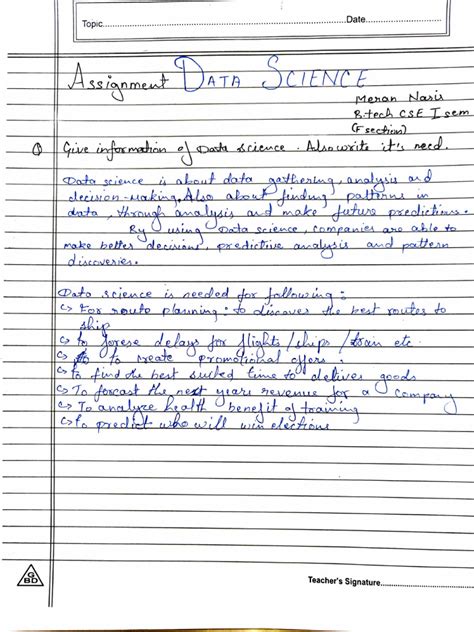 Topic.......................................Date....................
Assignment DATA SCIENCE
Meran Nasir
B.tech CSE I sem
(F section)
Q Give information of Data science. Also write it's need.
Data science is about data gathering, analysis and
decision-making. Also about finding patterns in
data, through analysis and make future predictions.
By using Data science, companies are able to
make better decisions, predictive analysis and pattern
discoveries.
Data science is needed for following:
↪ For route planning: to discover the best routes to
ship
↪ to forese delays for flights/ships/train etc.
↪ to create promotional offers.
↪ to find the best suited time to deliver goods
↪ To forcast the next years revenue for a company
↪ To analyze health benefit of training
↪ to predict who will win elections
GBD
Teacher's Signature..............................